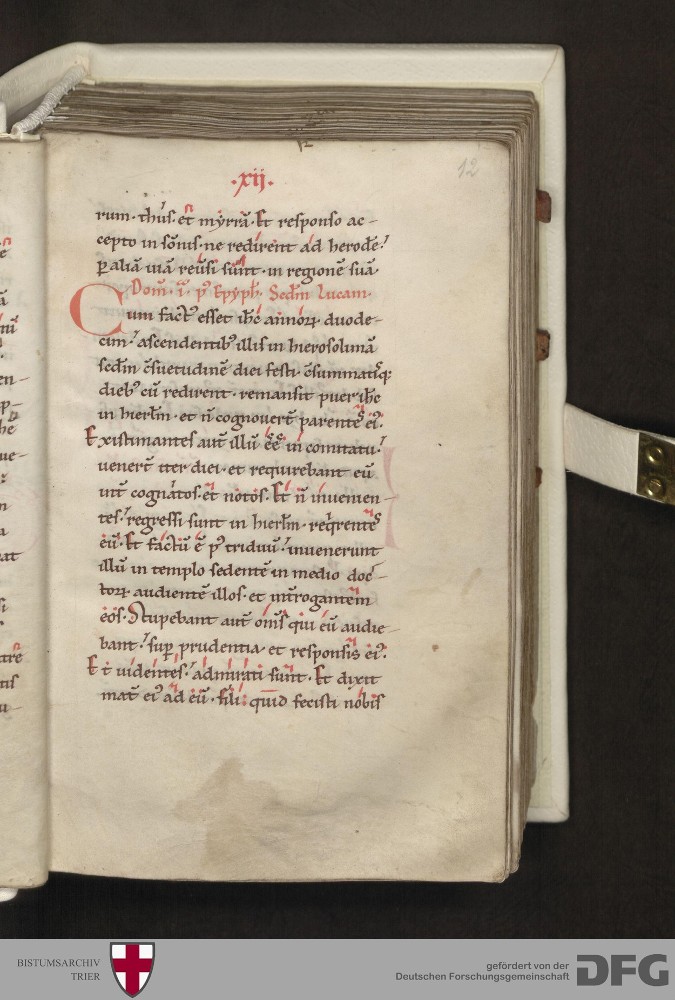 12
·xij·
rum· th&#x27;us· et myrrā· Et responso ac-
cepto in sōnis· ne redirent ad herodē·
ꝑ aliā uiā reu&#x27;si sunt· in regionē suā·
Dom̄· i· p&#x27; Epyph· Scd̄m Lucam·
Cum fact&#x27; esset ihc̄ annoꝝ duode-
cim· ascendentib&#x27; illis in hierosolimā
scd̄m c̄suetudinē diei festi· c̄summatisq;
dieb&#x27; cū redirent· remansit puer ihc̄
in hierl̄m· et n̄ cognouer̄t parentes ei&#x27;·
Existimantes aut̄ illū eē in comitatu·
uener̄t iter diei· et requirebant eū
int̄ cognatos· et notos· Et n̄ inuenien-
tes· regressi sunt in hierl̄m· reqrentes
eū· Et factū ē p&#x27; triduū· inuenerunt
illū in templo sedentē in medio doc-
toꝝ audientē illos· et int̄rogantem
eos· Stupebant aut̄ oms̄ qui eū audie-
bant· sup prudentia· et responsis ei&#x27;·
Et uidentes· admirati sunt· Et dixit
mat̄ ei&#x27; ad eū· fili· quid fecisti nobis
BISTUMSARCHIV
TRIER
gefördert von der
Deutschen Forschungsgemeinschaft
DFG